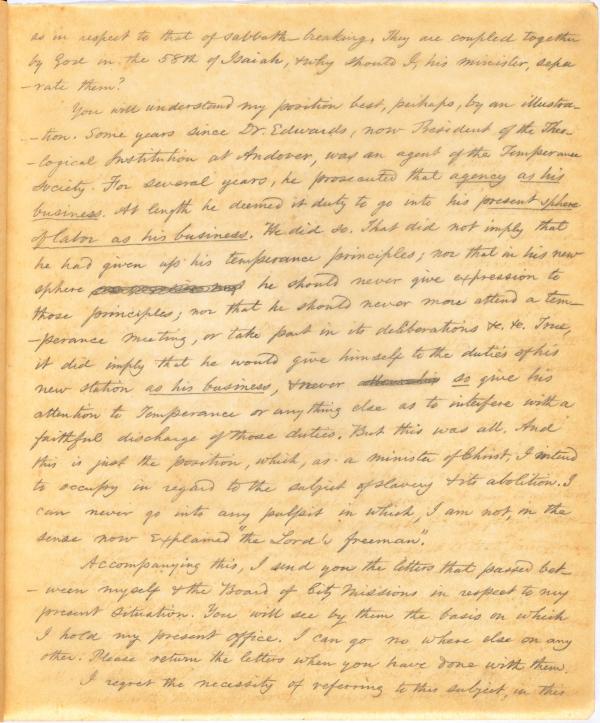 as in respect to that of sabbath-breaking. They are coupled together
by God in the 58th of Isaiah, & why should I, his minister, sepa
-rate them?
You will understand my position best, perhaps, by an illustra-
-tion. Some years since Dr. Edwards, now President of the Theo-
-logical Institution at Andover, was an agent of the Temperance
Society. For several years, he prosecuted that agency as his
business. At length he deemed it duty to go into his present sphere
of labor as his business. He did so. That did not imply that
he had given up his temperance principles; nor that in his new
sphere he should never give expression to
those principles; nor that he should never more attend a tem-
-perance meeting, or take part in its deliberations &c. &c. True,
it did imply that he would give himself to the duties of his
new station as his business, & never so give his
attention to Temperance or anything else as to interfere with a
faithful discharge of those duties. But this was all. And
this is just the position, which, as a minister of Christ, I intend
to occupy in regard to the subject of slavery & its abolition. I
can never go into any pulpit in which, I am not, in the
sense now explained "the Lord's freeman".
Accompanying this, I send you the letters that passed bet-
-ween myself & the Board of City Missions in respect to my
present situation. You will see by them the basis on which
I hold my present office. I can go no where else on any
other. Please return the letters when you have done with them.
I regret the necessity of referring to this subject, in this